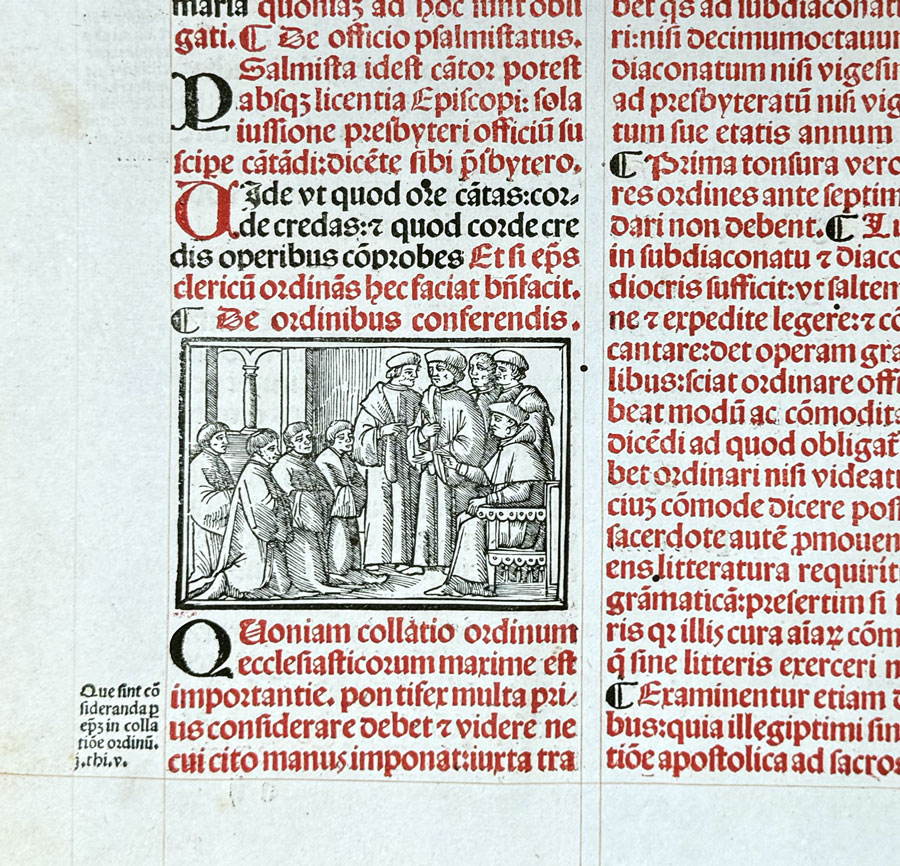 maria quoniaʒ ad hoc sunt obli
gati. ¶ De officio psalmistatus.
PSalmista idest cãtor potest
absqʒ licentia Episcopi: sola
iussione presbyteri officiũ su
scipe cãtãdi: dicẽte sibi p̃sbytero.
UIde vt quod ore cãtas: cor-
de credas: ⁊ quod corde cre
dis operibus cõprobes Et si ep̃s
clericũ ordinãs hec faciat bñfacit.
¶ De ordinibus conferendis.
QUoniam collatio ordinum
ecclesiasticorum maxime est
importantie. pontifex multa pri/
us considerare debet ⁊ videre ne
cui cito manus imponat: iuxta tra
Que sint cõ
sideranda ꝑ
ep̃ʒ in colla
tiõe ordinũ.
j. thi. v.
bet qs ad subdiaconat
ri: nisi decimumoctauum
diaconatum nisi vigesim
ad presbyteratũ nisi vig
tum sue etatis annum
¶ Prima tonsura vero
res ordines ante septim
dari non debent. ¶ Lu
in subdiaconatu ⁊ diaco
diocris sufficit: vt saltem
ne ⁊ expedite legere: ⁊ cõ
cantare: det operam gra
libus: sciat ordinare offi
beat modũ ac cõmodita
dicẽdi ad quod obligat̃
bet ordinari nisi videat
ciuʒ cõmode dicere pos
sacerdote autẽ ꝓmouen
ens litteratura requirit
grãmaticã: presertim si
ris qr illis cura aĩaꝝ cõm
q̃ sine litteris exerceri n
¶ Examinentur etiam d
bus: quia illegiptimi sin
tiõe apostolica ad sacros